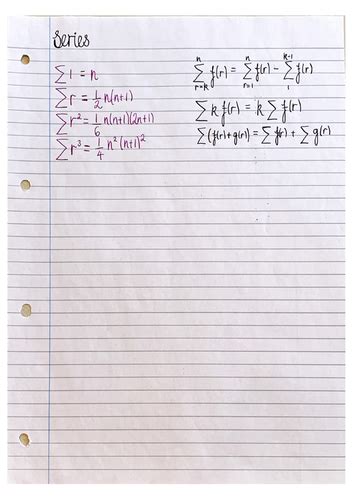 Series
∑ 1 = n
∑ r = 1/2 n(n+1)
∑ r² = 1/6 n(n+1)(2n+1)
∑ r³ = 1/4 n² (n+1)²
n∑r=k f(r) = n∑r=1 f(r) - k-1∑1 f(r)
∑ k f(r) = k ∑ f(r)
∑ (f(r) + g(r)) = ∑ f(r) + ∑ g(r)